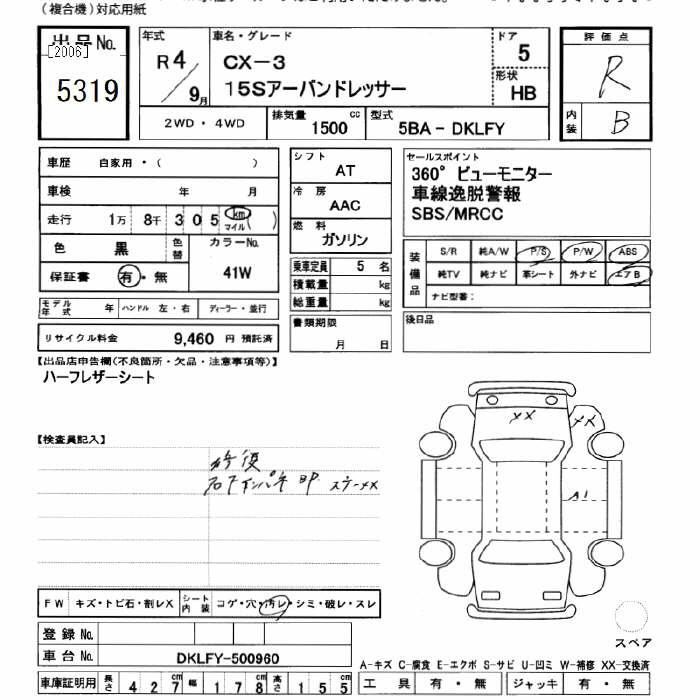 (複合機)対応用紙
出品No.
[2006]
5319
年式
R4/9月
車名・グレード
CX-3
15Sアーバンドレッサー
ドア
5
形状
HB
2WD・4WD
排気量
1500 cc
型式
5BA-DKLFY
評価点
R
内装
B
車歴 自家用・( )
車検 年 月
走行 1万 8千 305 km マイル ( )
色 黒 色替
カラーNo.
41W
保証書 有・無
モデル年式 年 ハンドル 左・右 ディーラー・並行
リサイクル料金 9,460 円 預託済
シフト
AT
冷房
AAC
燃料
ガソリン
乗車定員 5 名
積載量 kg
総重量 kg
書類期限
月 日
セールスポイント
360°ビューモニター
車線逸脱警報
SBS/MRCC
装備品
S/R 純A/W P/S P/W ABS
純TV 純ナビ 革シート 外ナビ エアB
ナビ型番:
後日品
【出品店申告欄(不良箇所・欠品・注意事項等)】
ハーフレザーシート
【検査員記入】
修復
XX
XX
A1
FW キズ・トビ石・割レX シート内装 コゲ・穴・汚レ・シミ・破レ・スレ
登録No.
車台No. DKLFY-500960
スペア
A-キズ C-腐食 E-エクボ S-サビ U-凹ミ W-補修 XX-交換済
車庫証明用 長さ 427cm 幅 178cm 高さ 155cm
工具 有・無 ジャッキ 有・無